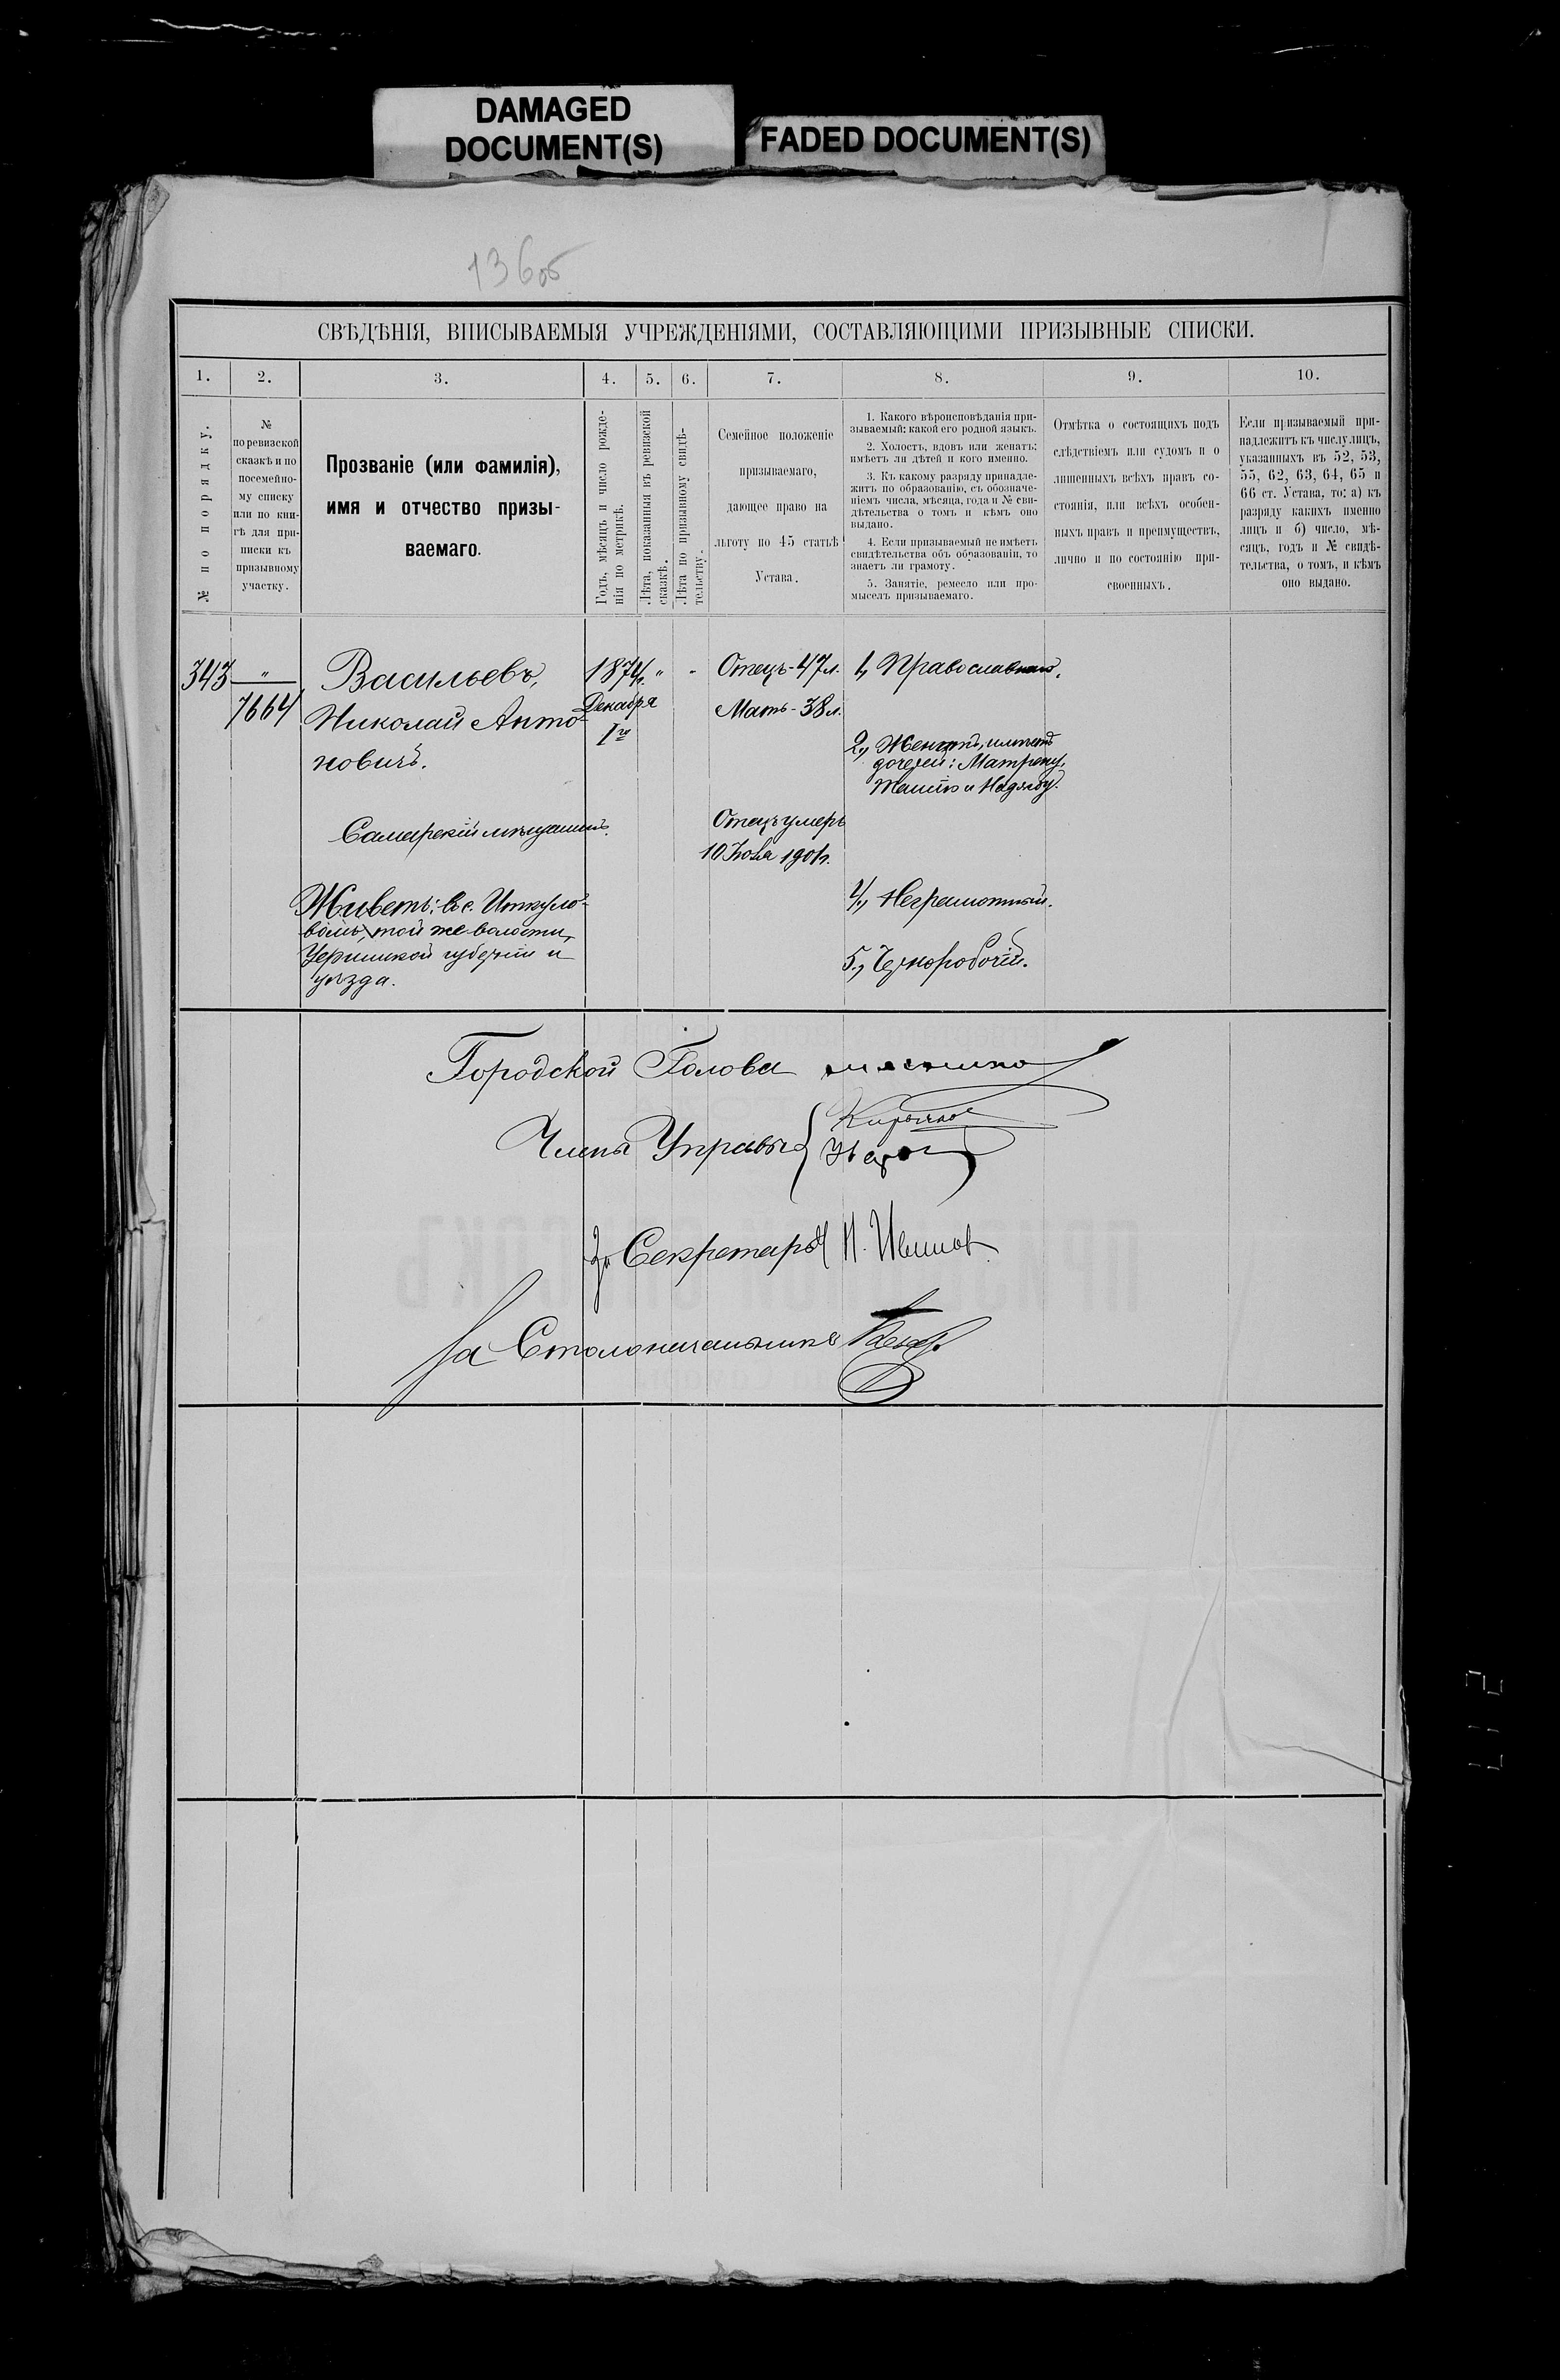 DAMAGED
DOCUMENT(S)
FADED DOCUMENT(S)
136об
СВѢДѢНІЯ, ВПИСЫВАЕМЫЯ УЧРЕЖДЕНІЯМИ, СОСТАВЛЯЮЩИМИ ПРИЗЫВНЫЕ СПИСКИ.
1. 2. 3. 4. 5. 6. 7. 8. 9. 10.
№ по порядку.
№
по ревизской
сказкѣ и по
посемейно-
му списку
или по кни-
гѣ для при-
писки къ
призывному
участку.
Прозваніе (или фамилія),
имя и отчество призы-
ваемаго.
Годъ, мѣсяцъ и число рожде-
нія по метрикѣ.
Лѣта, показанныя въ ревизской
сказкѣ.
Лѣта по призывному свидѣ-
тельству.
Семейное положеніе
призываемаго,
дающее право на
льготу по 45 статьѣ
Устава.
1. Какого вѣроисповѣданія при-
зываемый; какой его родной языкъ.
2. Холостъ, вдовъ или женатъ;
имѣетъ ли дѣтей и кого именно.
3. Къ какому разряду принадле-
житъ по образованію, съ обозначе-
ніемъ числа, мѣсяца, года и № сви-
дѣтельства о томъ и кѣмъ оно
выдано.
4. Если призываемый не имѣетъ
свидѣтельства объ образованіи, то
знаетъ ли грамоту.
5. Занятіе, ремесло или про-
мыселъ призываемаго.
Отмѣтка о состоящихъ подъ
слѣдствіемъ или судомъ и о
лишенныхъ всѣхъ правъ со-
стоянія, или всѣхъ особен-
ныхъ правъ и преимуществъ,
лично и по состоянію при-
своенныхъ.
Если призываемый при-
надлежитъ къ числу лицъ,
указанныхъ въ 52, 53,
55, 62, 63, 64, 65 и
66 ст. Устава, то: а) къ
разряду какихъ именно
лицъ и б) число, мѣ-
сяцъ, годъ и № свидѣ-
тельства, о томъ, и кѣмъ
оно выдано.
343
"
7664
Васильевъ,
Николай Анто-
новичъ.
Самарскій мѣщанинъ.
Живетъ: въ с.
той же волости,
губерніи и
уѣзда.
1874г.
Декабря
1го
"
"
Отецъ-47л.
Мать-38л.
Отецъ умеръ
10 190
1, Православный.
2., Женатъ, имѣетъ
дочерей: Матрену,
и
4., Неграмотный.
5., Чернорабочій.
Городской Голова
Члены Управы
За Секретаря Н. Иванов
За Столоначальника